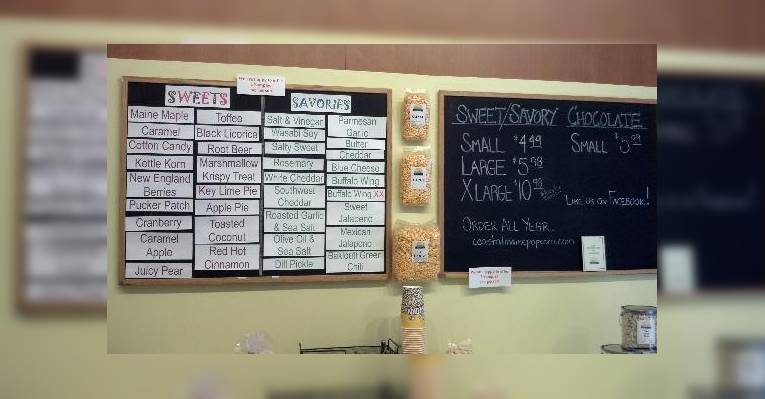 SWEETS
Maine Maple
Caramel
Cotton Candy
Kettle Korn
New England
Berries
Pucker Patch
Cranberry
Caramel
Apple
Juicy Pear
Toffee
Black Licorice
Root Beer
Marshmallow
Krispy Treat
Key Lime Pie
Apple Pie
Toasted
Coconut
Red Hot
Cinnamon
SAVORIES
Salt & Vinegar
Wasabi Soy
Salty Sweet
Rosemary
White Cheddar
Southwest
Cheddar
Roasted Garlic
& Sea Salt
Olive Oil &
Sea Salt
Dill Pickle
Parmesan
Garlic
Butter
Cheddar
Blue Cheese
Buffalo Wing
Buffalo Wing XX
Sweet
Jalapeno
Mexican
Jalapeno
Baklouti Green
Chili
SWEET/SAVORY
SMALL $4.49
LARGE $5.98
XLARGE $10.98
CHOCOLATE
SMALL $5.99
LIKE US ON FACEBOOK!
ORDER ALL YEAR...
coastalmainepopcorn.com